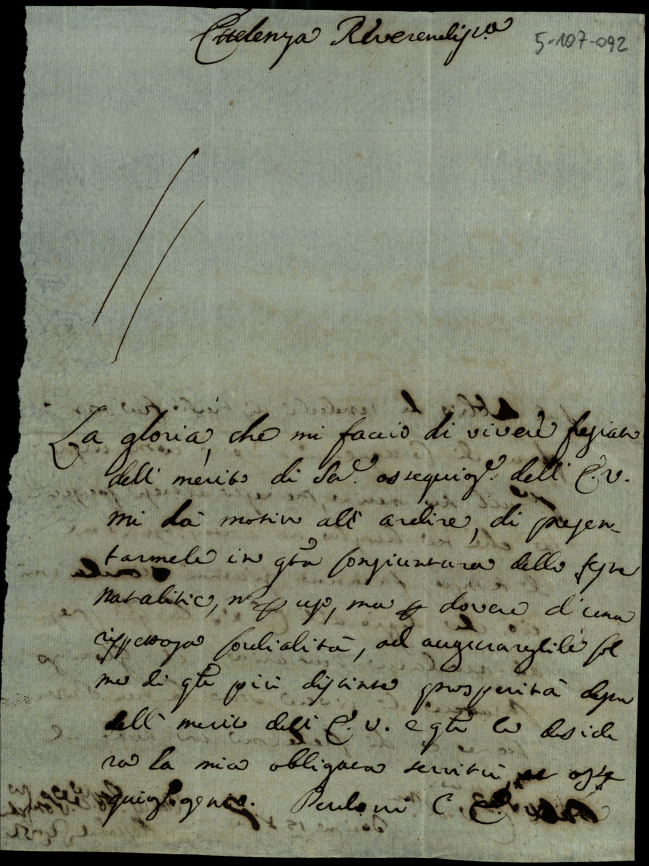 Eccelenza Reverendiss.a
5-107-092
La gloria, che mi faccio di vivere fregiato
dell' merito di Ser.e ossequios.e dell' E. V.
mi dà motivo all' ardire, di presen-
tarmele in qta congiuntura delle feste
natalitie, n p uso, ma p dovere d'una
rispettosa cordialità, ad augurargli il col
mo di qte più distinte prosperità degne
dell' merito dell' E. V. e qte le deside
ra la mia obligata servitù, ed osse
Perdoni E.